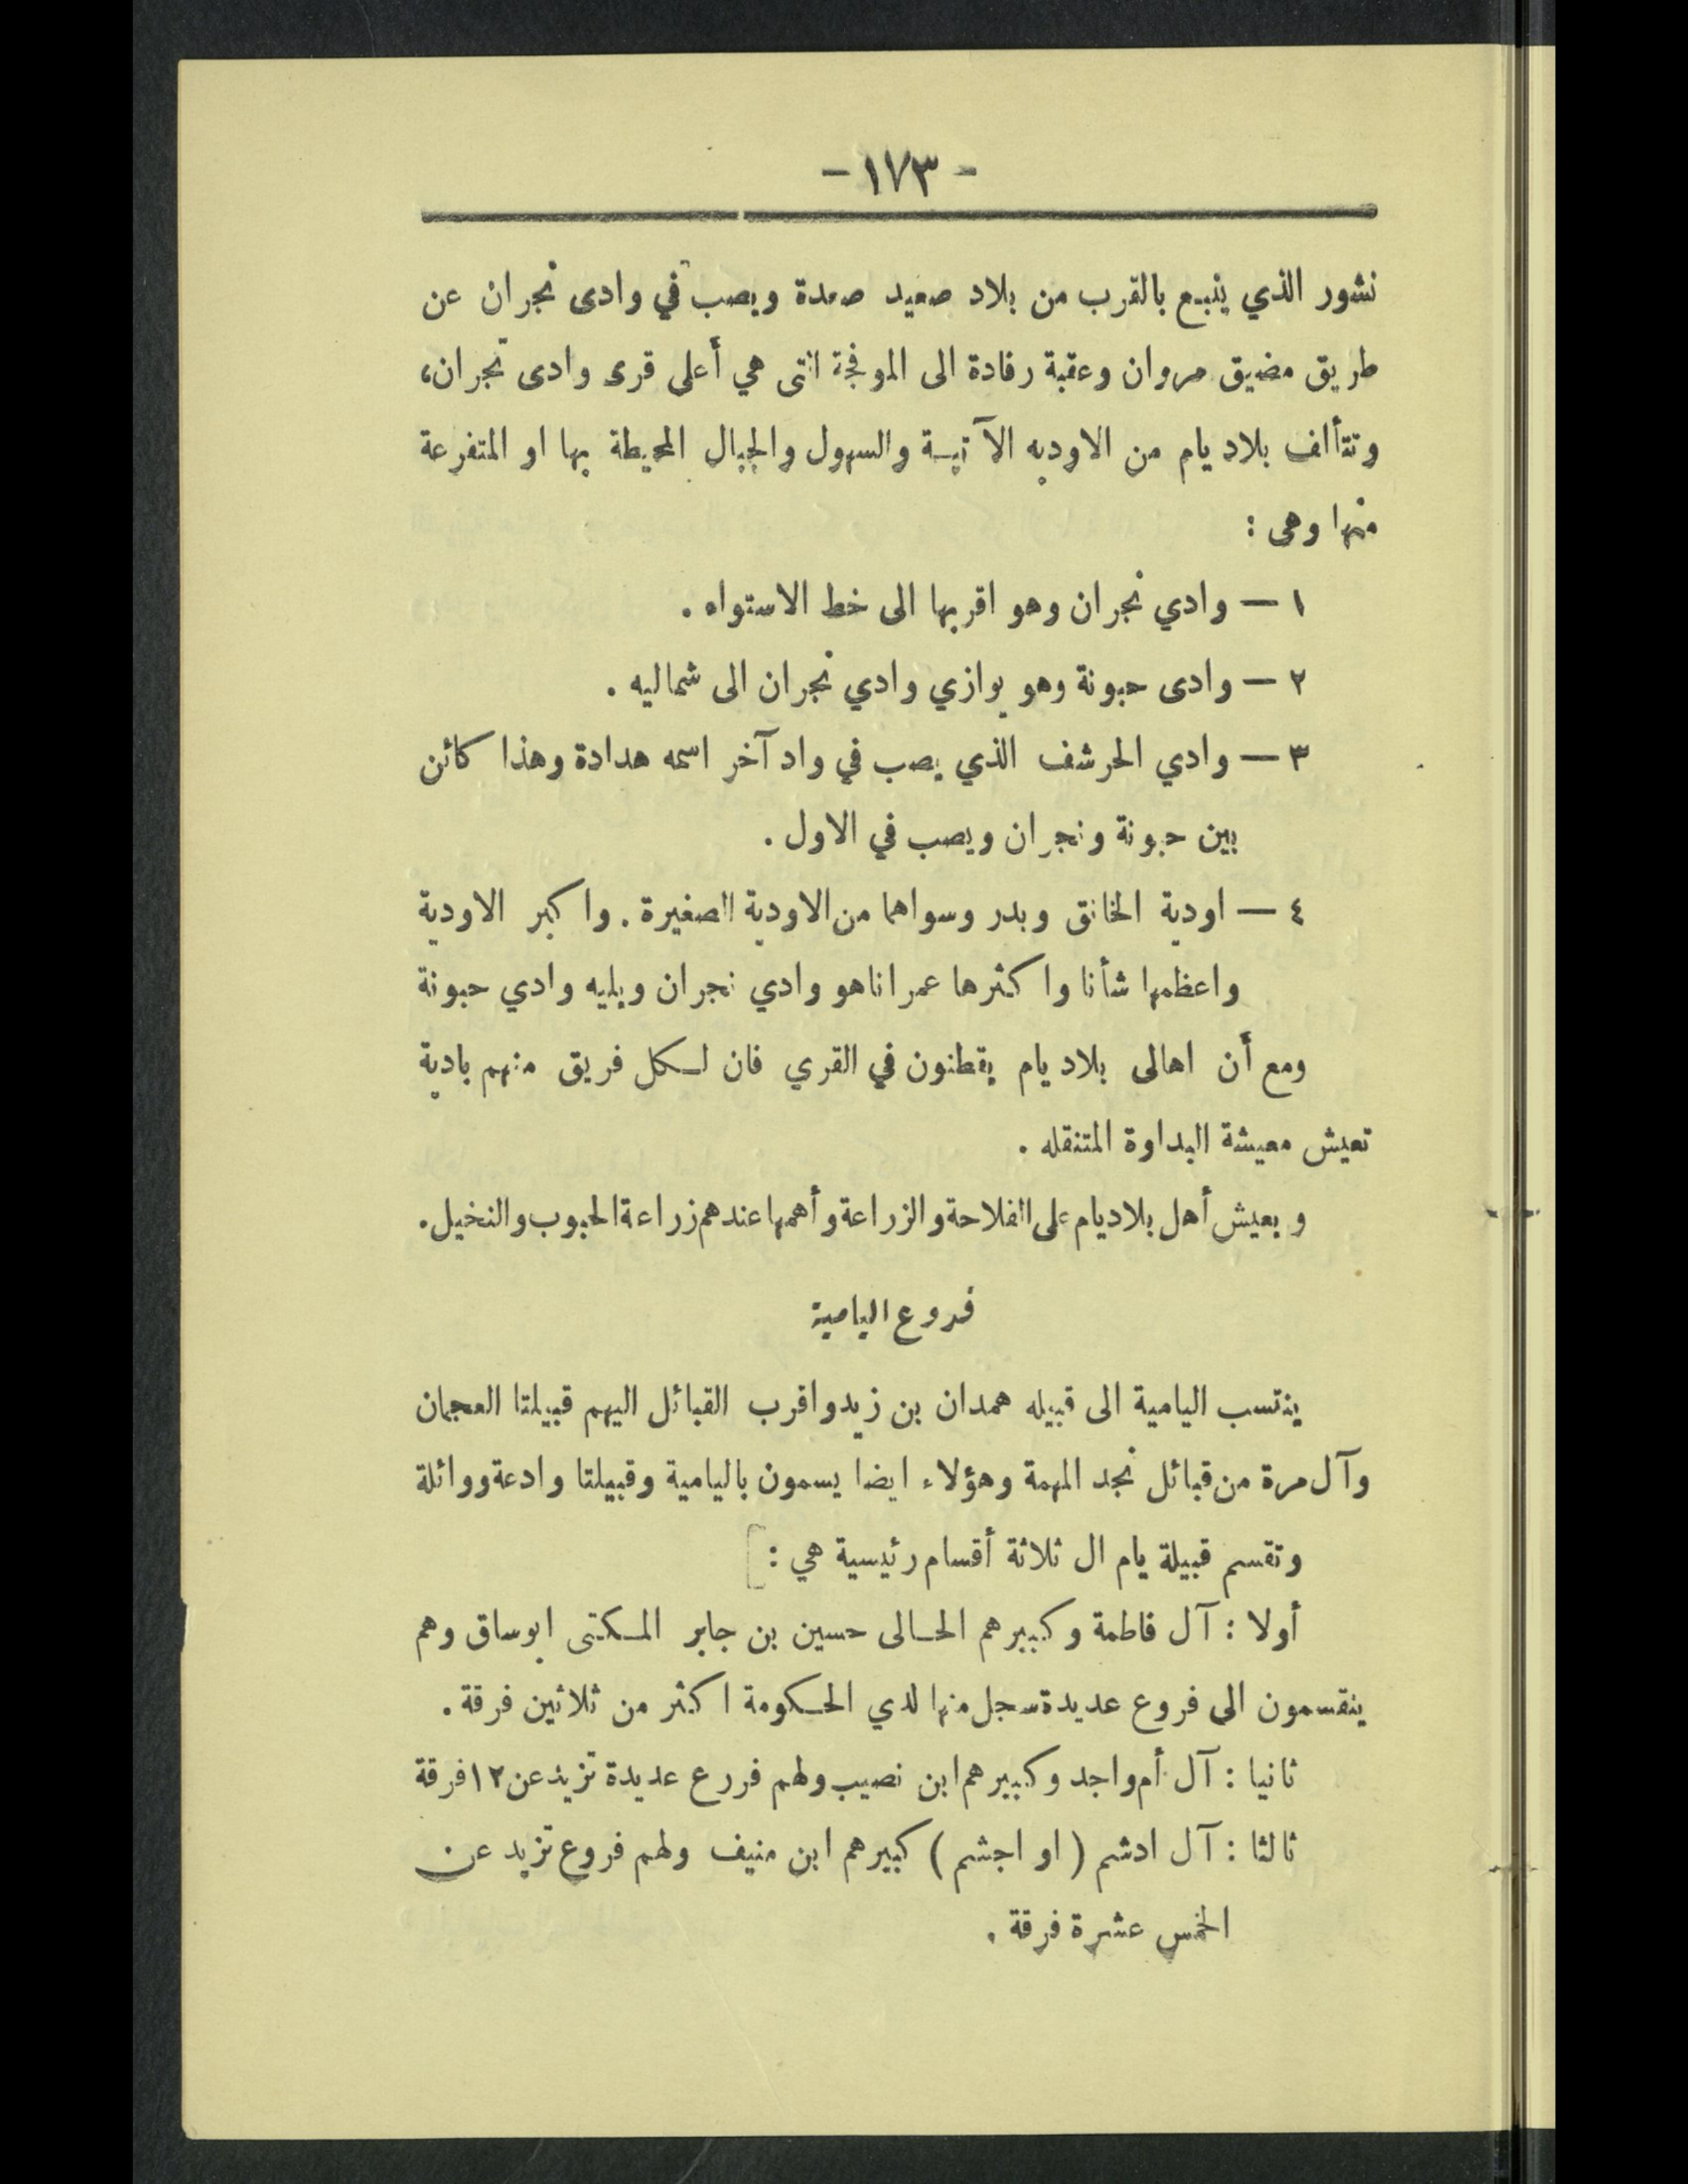 - ١٧٣ -
نشور الذي ينبع بالقرب من بلاد صعيد صعدة ويصب في وادى نجران عن
طريق مضيق مروان وعقبة رفادة الى الموفجة التى هي أعلى قرى وادى نجران،
وتتألف بلاد يام من الاوديه الآتية والسهول والجبال المحيطة بها او المتفرعة
منها وهى :
١ — وادي نجران وهو اقربها الى خط الاستواء .
٢ — وادى حبونة وهو يوازي وادي نجران الى شماليه .
٣ — وادي الحرشف الذي يصب في واد آخر اسمه هدادة وهذا كائن
بين حبونة ونجران ويصب في الاول .
٤ — اودية الخانق وبدر وسواهما من الاودية الصغيرة . واكبر الاودية
واعظمها شأنا واكثرها عمرانا هو وادي نجران ويليه وادي حبونة
ومع أن اهالى بلاد يام يقطنون في القري فان لكل فريق منهم بادية
تعيش معيشة البداوة المتنقله .
ويعيش أهل بلاد يام على الفلاحة والزراعة وأهمها عندهم زراعة الحبوب والنخيل .
فروع اليامية
ينتسب اليامية الى قبيله همدان بن زيد واقرب القبائل اليهم قبيلتا العجمان
وآل مرة من قبائل نجد المهمة وهؤلاء ايضا يسمون باليامية وقبيلتا وادعة ووائلة
وتقسم قبيلة يام ال ثلاثة أقسام رئيسية هي : [
أولا : آل فاطمة وكبيرهم الحالى حسين بن جابر المكتى ابوساق وهم
ينقسمون الى فروع عديدة سجل منها لدي الحكومة اكثر من ثلاثين فرقة .
ثانيا : آل أم واجد وكبيرهم ابن نصيب ولهم فررع عديدة تزيد عن ١٢ فرقة
ثالثا : آل ادشم ( او اجشم ) كبيرهم ابن منيف ولهم فروع تزيد عن
الخمس عشرة فرقة .